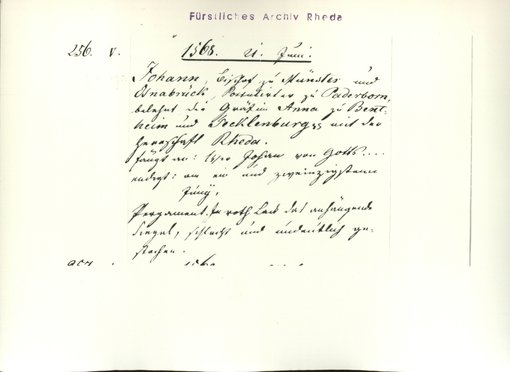 Fürstliches Archiv Rheda
256. V. 1568. 21. Juni.
Johann, Bischof zu Münster und
Osnabrück, Administrator zu Paderborn,
belehnt die Gräfin Anna zu Bent-
heim und Tecklenburg mit der
Herrschaft Rheda.
fängt an: Wir Johan von Gotts....
endigt: am ein und zweinzigstenn
Junÿ.
Pergament. In roth Lack das anhängende
Siegel, schlecht und undeutlich ge-
stochen.